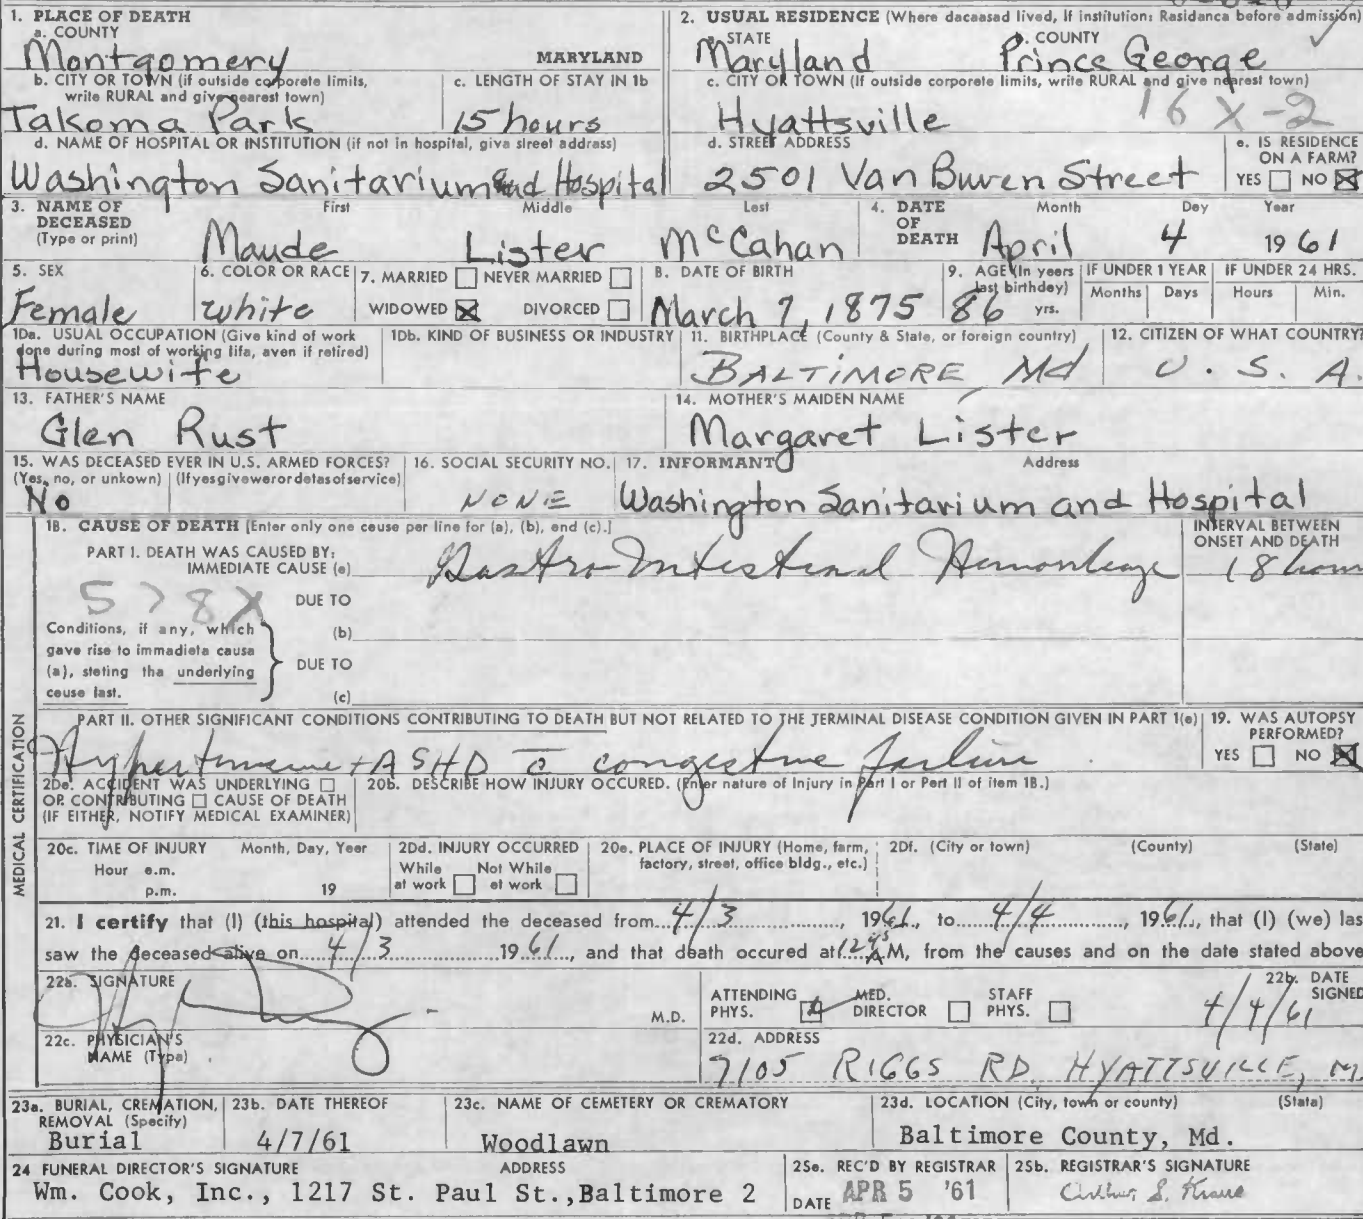 1. PLACE OF DEATH
a. COUNTY
Montgomery MARYLAND
2. USUAL RESIDENCE (Where daceasad lived, If institution: Rasidanca before admission)
a. STATE b. COUNTY
Maryland Prince George
b. CITY OR TOWN (if outside corporate limits, write RURAL and give nearest town)
Takoma Park
c. LENGTH OF STAY IN 1b
15 hours
c. CITY OR TOWN (If outside corporate limits, write RURAL and give nearest town)
Hyattsville
16 X-2
d. NAME OF HOSPITAL OR INSTITUTION (if not in hospital, giva street address)
Washington Sanitarium and Hospital
d. STREET ADDRESS
2501 Van Buren Street
e. IS RESIDENCE ON A FARM?
YES NO
3. NAME OF DECEASED (Type or print)
First Middle Last
Maude Lister McCahan
4. DATE OF DEATH
Month Day Year
April 4 1961
5. SEX
Female
6. COLOR OR RACE
white
7. MARRIED NEVER MARRIED
WIDOWED DIVORCED
8. DATE OF BIRTH
March 7, 1875
9. AGE (In years last birthday)
86 yrs.
IF UNDER 1 YEAR
Months Days
IF UNDER 24 HRS.
Hours Min.
10a. USUAL OCCUPATION (Give kind of work done during most of working lifa, avan if retired)
Housewife
10b. KIND OF BUSINESS OR INDUSTRY
11. BIRTHPLACE (County & State, or foreign country)
BALTIMORE, Md
12. CITIZEN OF WHAT COUNTRY?
U. S. A.
13. FATHER'S NAME
Glen Rust
14. MOTHER'S MAIDEN NAME
Margaret Lister
15. WAS DECEASED EVER IN U.S. ARMED FORCES?
(Yes, no, or unkown) (Ifyesgivewerordetasofservice)
No
16. SOCIAL SECURITY NO.
NONE
17. INFORMANT Address
Washington Sanitarium and Hospital
18. CAUSE OF DEATH [Enter only one cause per line for (a), (b), end (c).]
INTERVAL BETWEEN ONSET AND DEATH
PART I. DEATH WAS CAUSED BY:
IMMEDIATE CAUSE (e) Gastro-Intestinal Hemorrhage 18 hours
578X
DUE TO
Conditions, if any, which (b)
gave rise to immadieta causa
(a), steting tha underlying DUE TO
ceuse last. (c)
MEDICAL CERTIFICATION
PART II. OTHER SIGNIFICANT CONDITIONS CONTRIBUTING TO DEATH BUT NOT RELATED TO THE TERMINAL DISEASE CONDITION GIVEN IN PART 1(e)
Hypertensive + ASHD c̄ congestive failure
19. WAS AUTOPSY PERFORMED?
YES NO
20e. ACCIDENT WAS UNDERLYING
OR CONTRIBUTING CAUSE OF DEATH
(IF EITHER, NOTIFY MEDICAL EXAMINER)
20b. DESCRIBE HOW INJURY OCCURED. (Enter nature of Injury in Part I or Pert II of item 18.)
20c. TIME OF INJURY Month, Day, Year
Hour e.m.
p.m. 19
20d. INJURY OCCURRED
While at work Not While et work
20e. PLACE OF INJURY (Home, farm, factory, street, office bldg., etc.)
20f. (City or town) (County) (State)
21. I certify that (I) (this hospital) attended the deceased from 4/3 1961, to 4/4, 1961, that (I) (we) las
saw the deceased alive on 4/3 1961, and that death occured at 12 45 A M, from the causes and on the date stated above
22a. SIGNATURE
M.D.
ATTENDING PHYS. MED. DIRECTOR STAFF PHYS.
22b. DATE SIGNED
4/4/61
22c. PHYSICIAN'S NAME (Type)
22d. ADDRESS
7105 RIGGS RD. HYATTSVILLE, M
23a. BURIAL, CREMATION, REMOVAL (Specify)
Burial
23b. DATE THEREOF
4/7/61
23c. NAME OF CEMETERY OR CREMATORY
Woodlawn
23d. LOCATION (City, town or county) (Stata)
Baltimore County, Md.
24 FUNERAL DIRECTOR'S SIGNATURE ADDRESS
Wm. Cook, Inc., 1217 St. Paul St.,Baltimore 2
25e. REC'D BY REGISTRAR
DATE APR 5 '61
25b. REGISTRAR'S SIGNATURE
Arthur S. Kraus